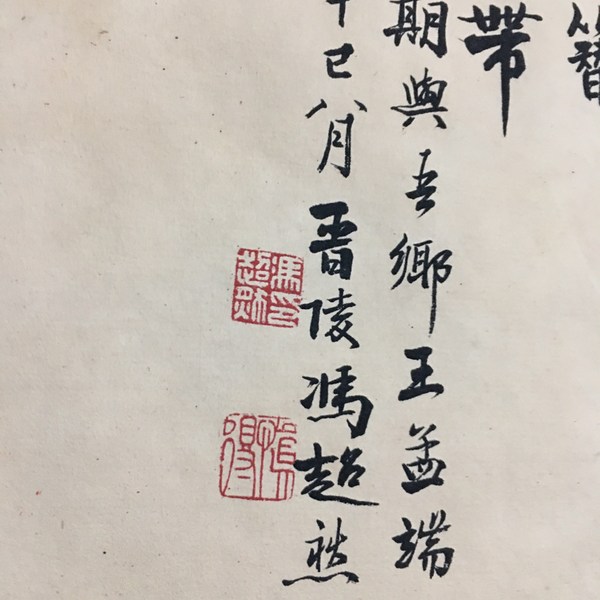 簪
帶
期與吾鄉王孟端
巳八月晋陵馮超然
馮超然印